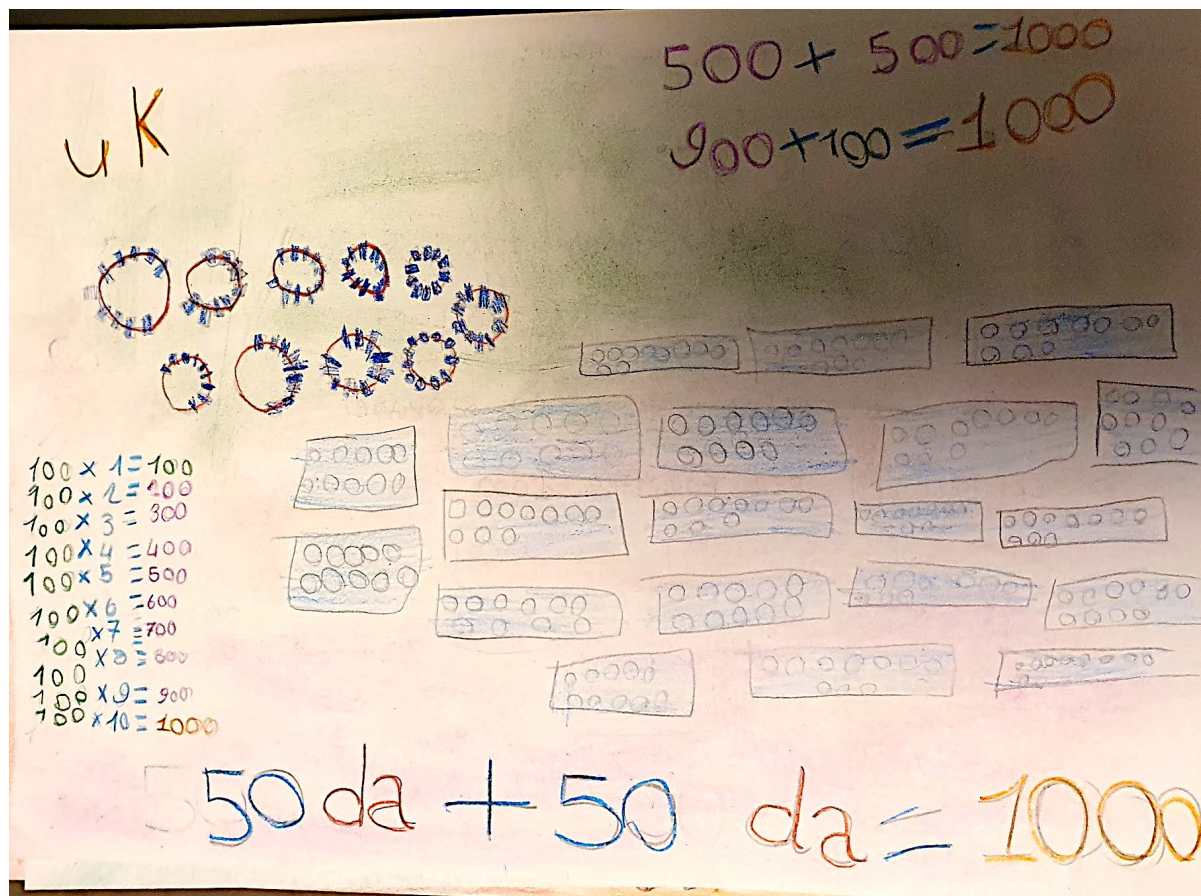 500 + 500 = 1000
900 + 100 = 1000
uK
100 x 1 = 100
100 x 2 = 200
100 x 3 = 300
100 x 4 = 400
100 x 5 = 500
100 x 6 = 600
100 x 7 = 700
100 x 8 = 800
100 x 9 = 900
100 x 10 = 1000
50 da + 50 da = 1000